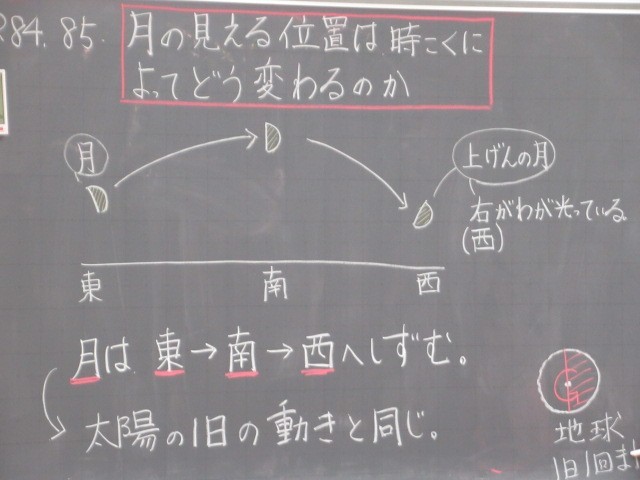 P84.85.
月の見える位置は時こくに
よってどう変わるのか
月
上げんの月
右がわが光っている
(西)
東 南 西
月は 東→南→西へしずむ。
太陽の1日の動きと同じ。
地球
1日1回ま